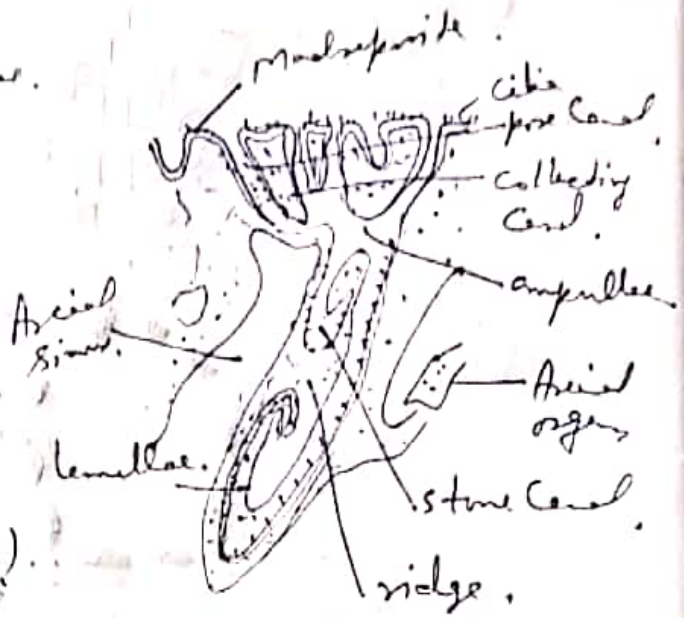 Madreporite.
Cilia
pore Canal.
Collecting
Canal.
ampullae
Axial
sinus.
Axial
organ
lamellae.
stone Canal.
ridge.
).